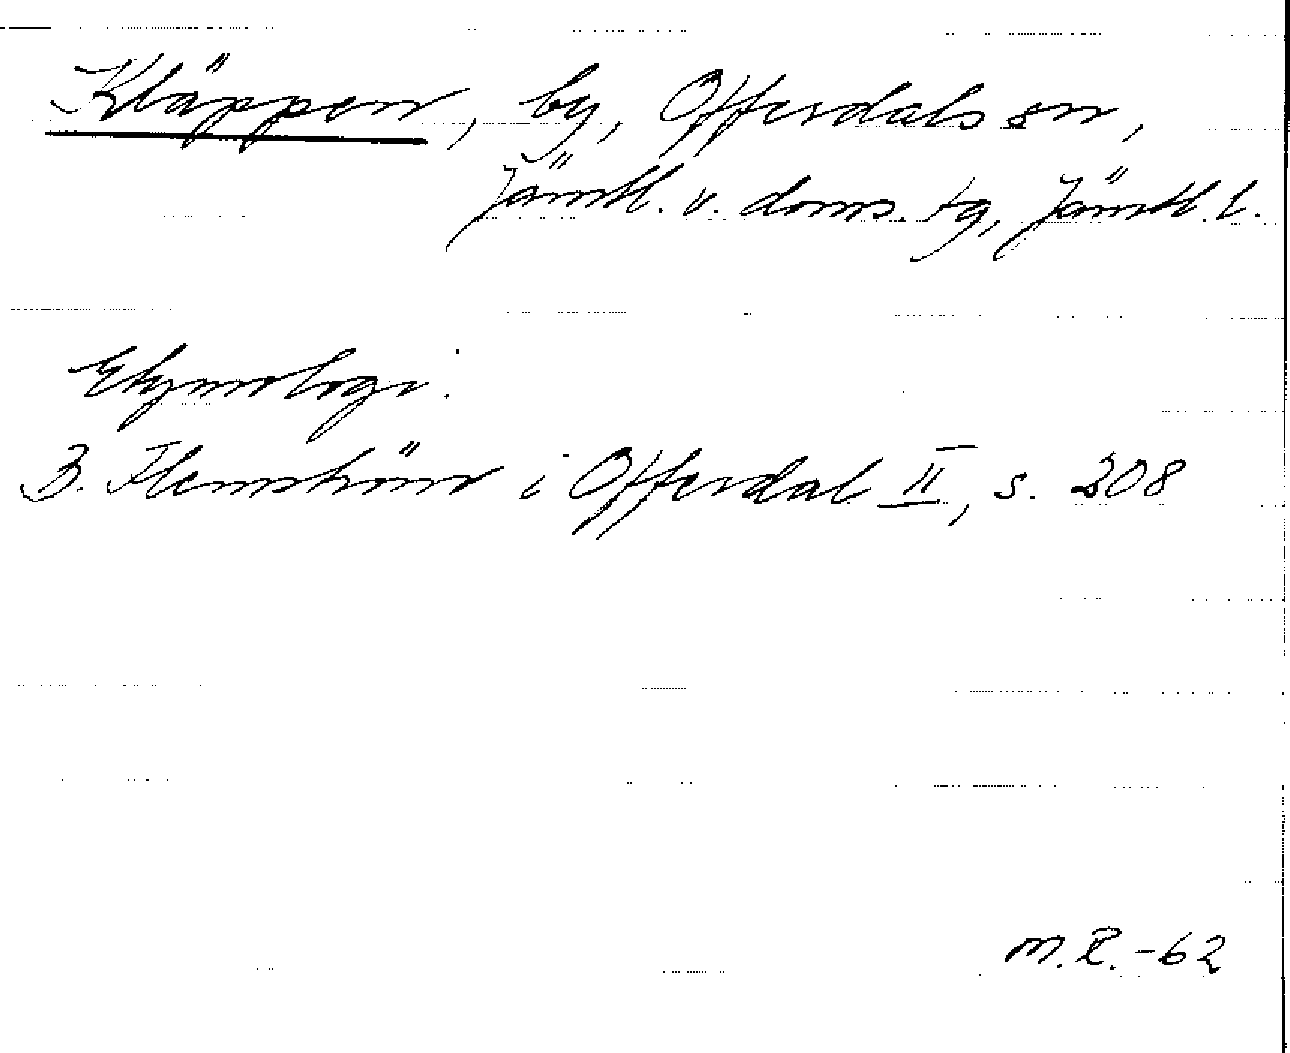 Kläppen, by, Offerdals sn,
Jämtl. v. doms. tg, Jämtl. l.
Etymologi:
B. Flemström i Offerdal II, s. 208
M.R.-62